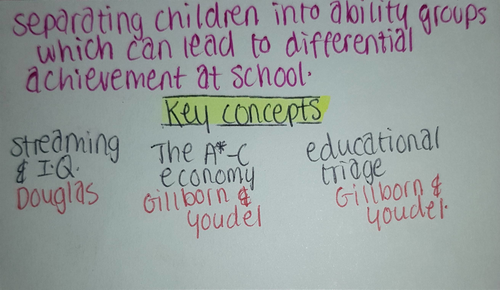 separating children into ability groups
which can lead to differential
achievement at school.
Key concepts
streaming
& I.Q.
Douglas
The A*-C
economy
Gillborn &
Youdel
educational
triage
Gillborn &
Youdel.